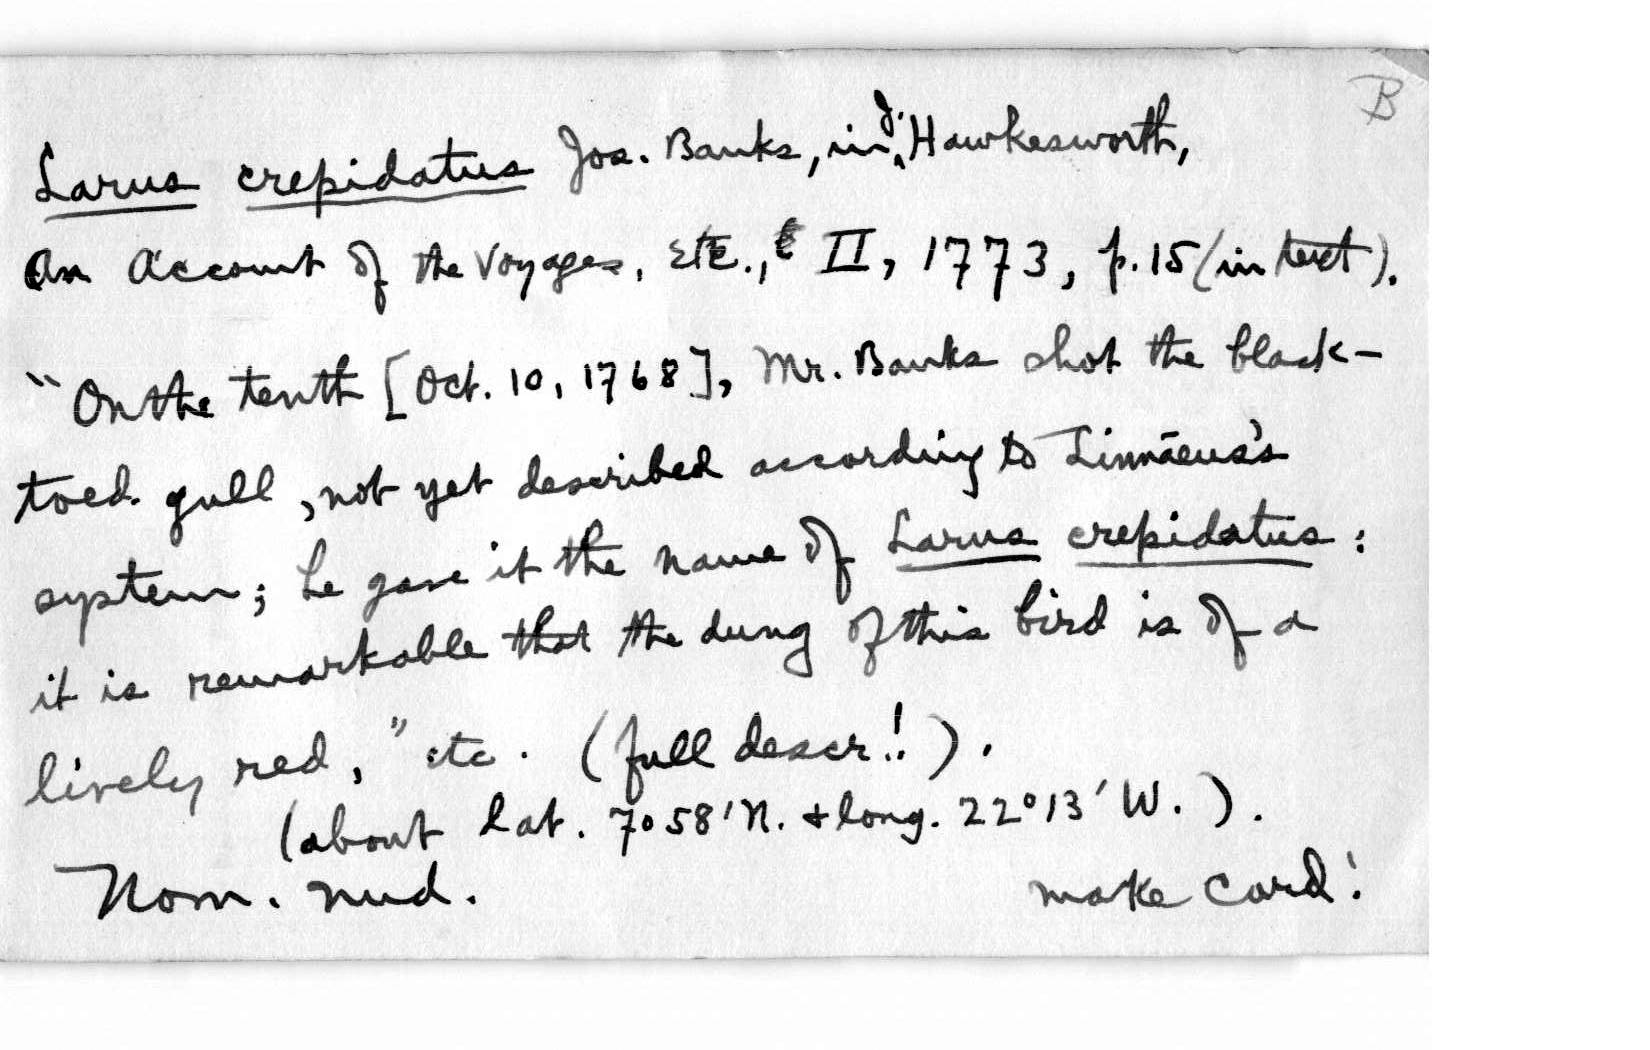 B
Larus crepidatus Jos. Banks, in J. Hawkesworth,
An Account of the Voyages, Etc., II, 1773, p. 15 (in text).
"On the tenth [Oct. 10, 1768], Mr. Banks shot the black-
toed gull, not yet described according to Linnæus's
system; he gave it the name of Larus crepidatus:
it is remarkable that the dung of this bird is of a
lively red," etc. (full descr.!).
(about Lat. 7°58'N. & long. 22°13'W.).
Nom. nud. make card!